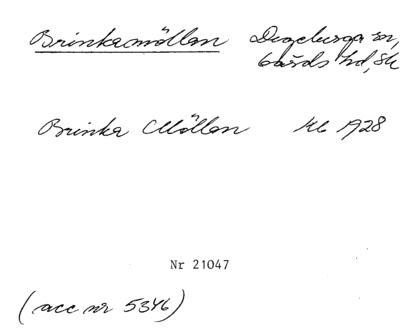 Brinkamöllan Degeberga sn,
Gärds hd, Sk
Brinka Möllan Kb 1928
Nr 21047
(acc nr 5346)